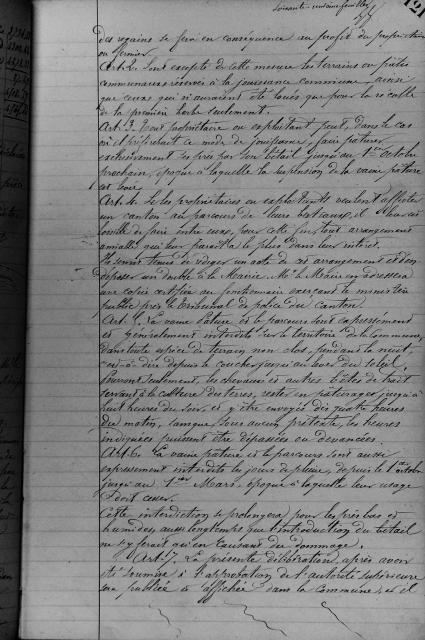 Soixante-onzième feuillet
121
des regains se fera en conséquence au profit du propriétaire
ou fermier.
Art. 2. Sont exceptés de cette mesure les terrains ou prés
communaux réservés à la jouissance commune, ainsi
que ceux qui n'auraient été loués que pour la récolte
de la première herbe seulement.
Art. 3. Tout propriétaire ou exploitant peut, dans le cas
où il préférerait ce mode de jouissance, faire pâturer
exclusivement les prés par son bétail jusqu'au 1er Octobre
prochain, époque à laquelle la suspension de la vaine pâture
est levée.
Art. 4. Si les propriétaires ou exploitants veulent affecter
un canton au parcours de leurs bestiaux, il leur est
loisible de faire entre eux, pour cette fin, tout arrangement
amiable qui leur paraîtra le plus dans leur intérêt.
Ils seront tenus de rédiger un acte de cet arrangement et d'en
déposer un double à la Mairie. Mr le Maire en adressera
une copie certifiée au fonctionnaire exerçant le ministère
public près le tribunal de police du Canton.
Art. 5. La vaine Pâture et le parcours sont expressément
et généralement interdits sur le territoire de la Commune,
dans toute espèce de terrain non clos, pendant la nuit,
c'est-à-dire depuis le coucher jusqu'au lever du soleil.
Pourront seulement, les chevaux et autres bêtes de trait
servant à la culture des terres, rester en pâturages jusqu'à
huit heures du soir, et y être envoyés dès quatre heures
du matin, sans que, sous aucun prétexte, les heures
indiquées puissent être dépassées ou devancées.
Art. 6. La vaine pâture et le parcours sont aussi
expressément interdits les jours de pluie, depuis le 1er octobre
jusqu'au 1er Mars, époque à laquelle leur usage
doit cesser.
Cette interdiction se prolongera pour les prés bas et
humides, aussi longtemps que l'introduction du bétail
ne s'y ferait qu'en causant du dommage.
Art. 7. La présente délibération, après avoir
été soumise à l'approbation de l'autorité supérieure
sera publiée et affichée dans la commune, et il